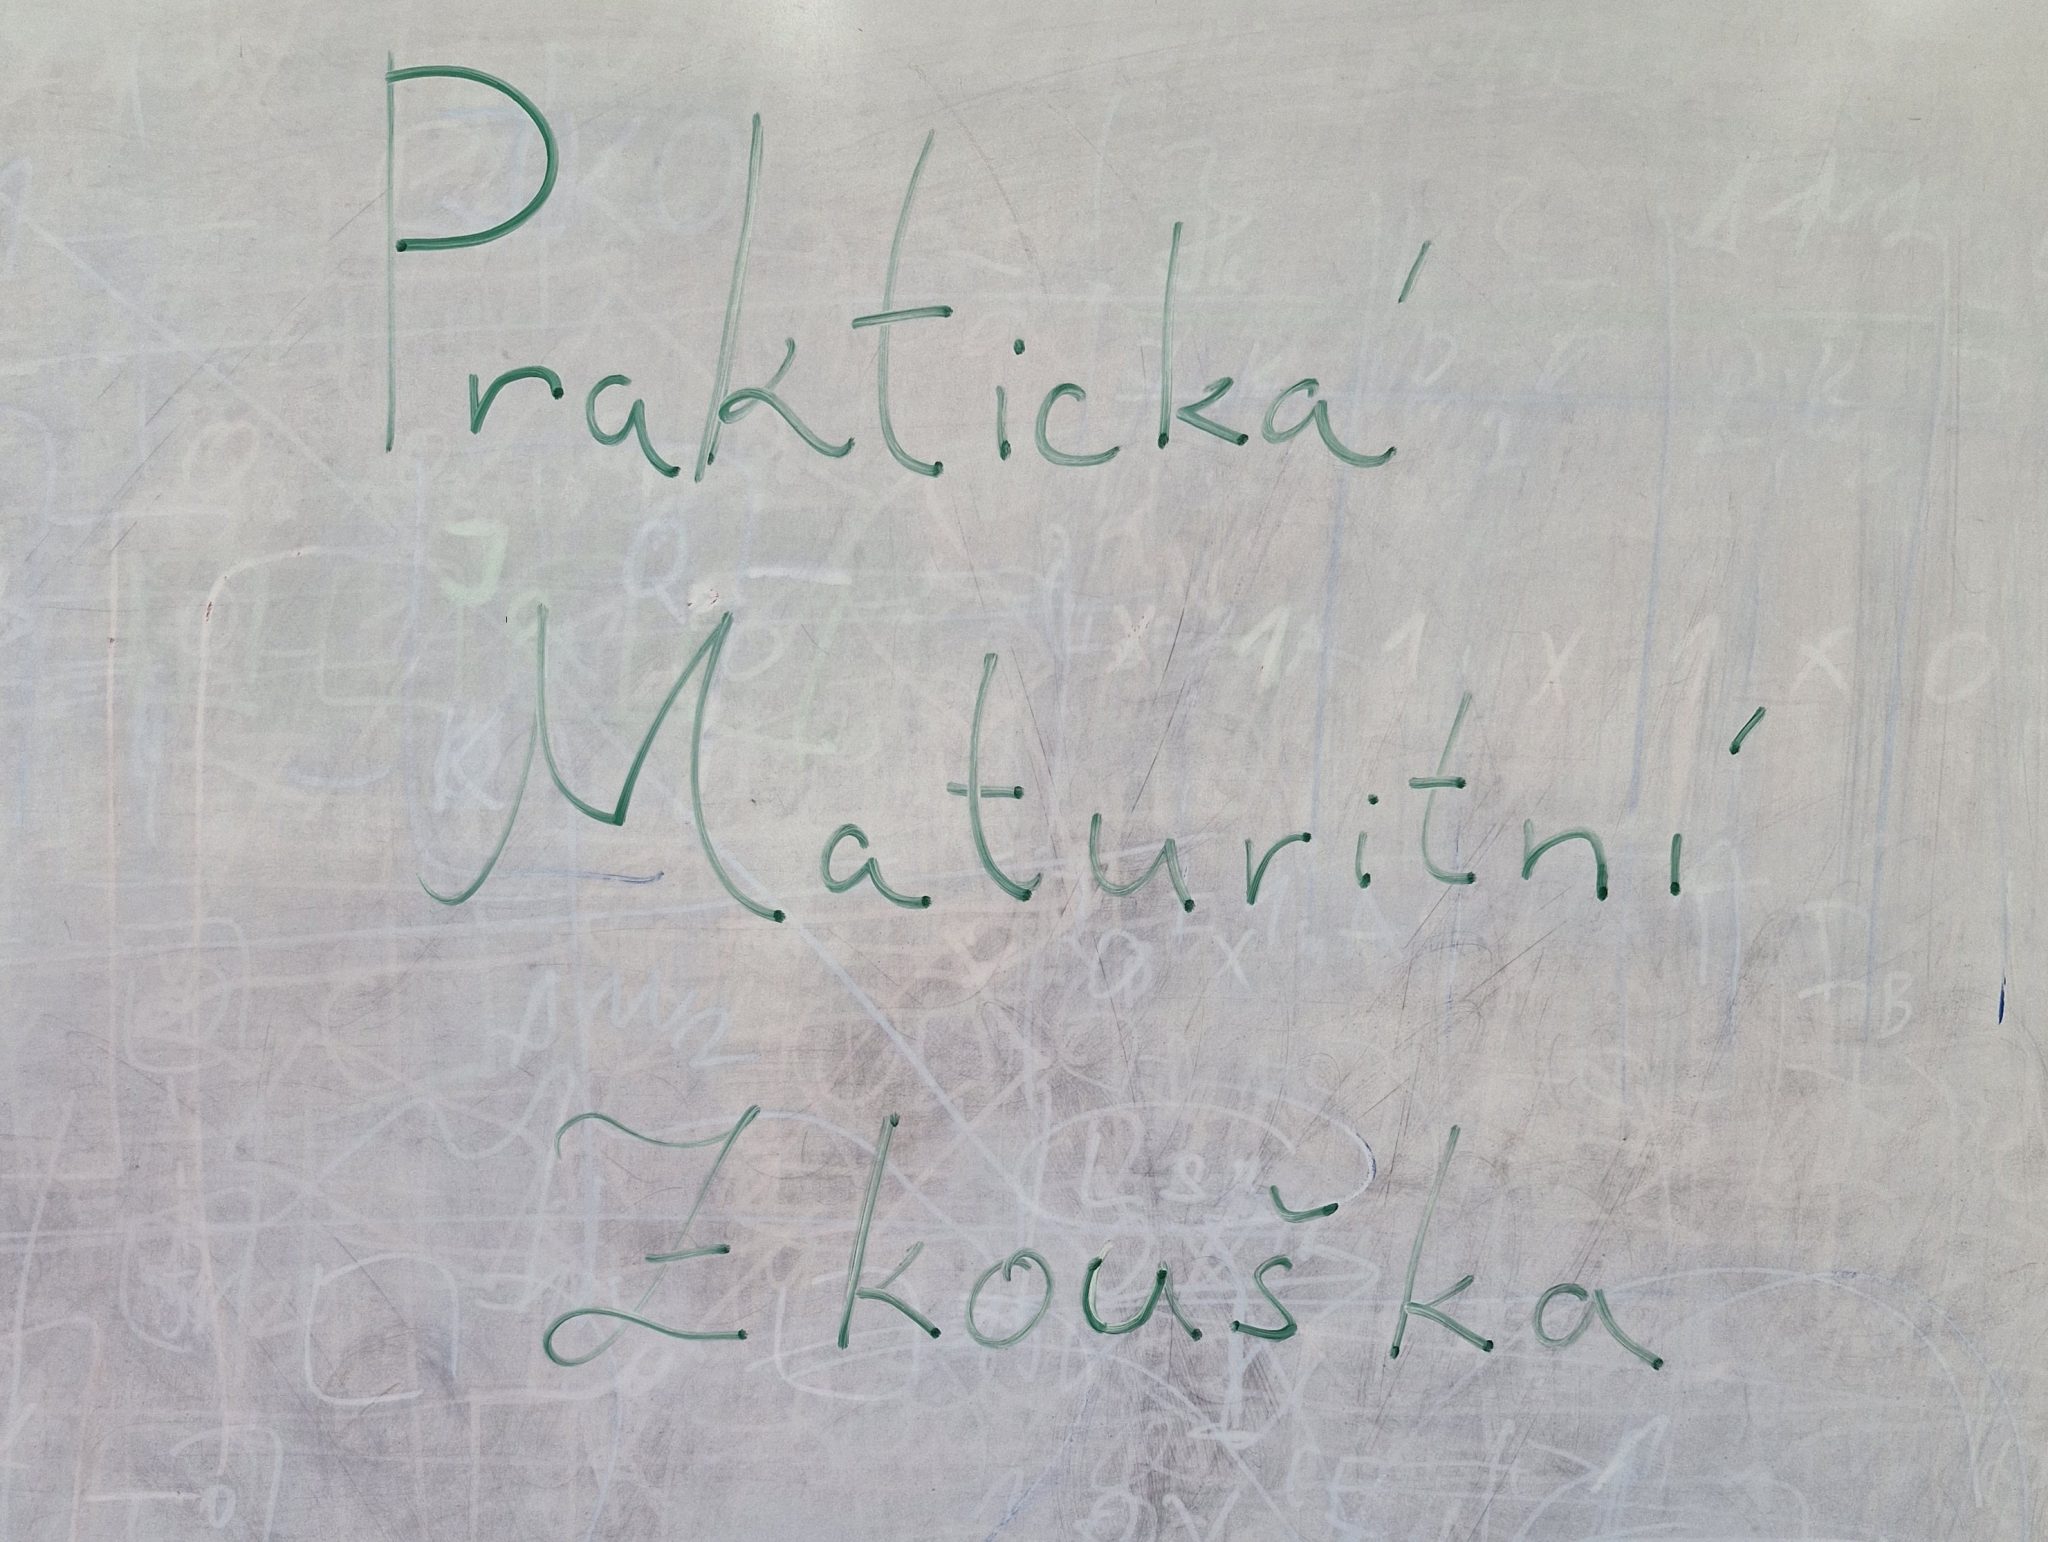 Praktická
Maturitní
Zkouška